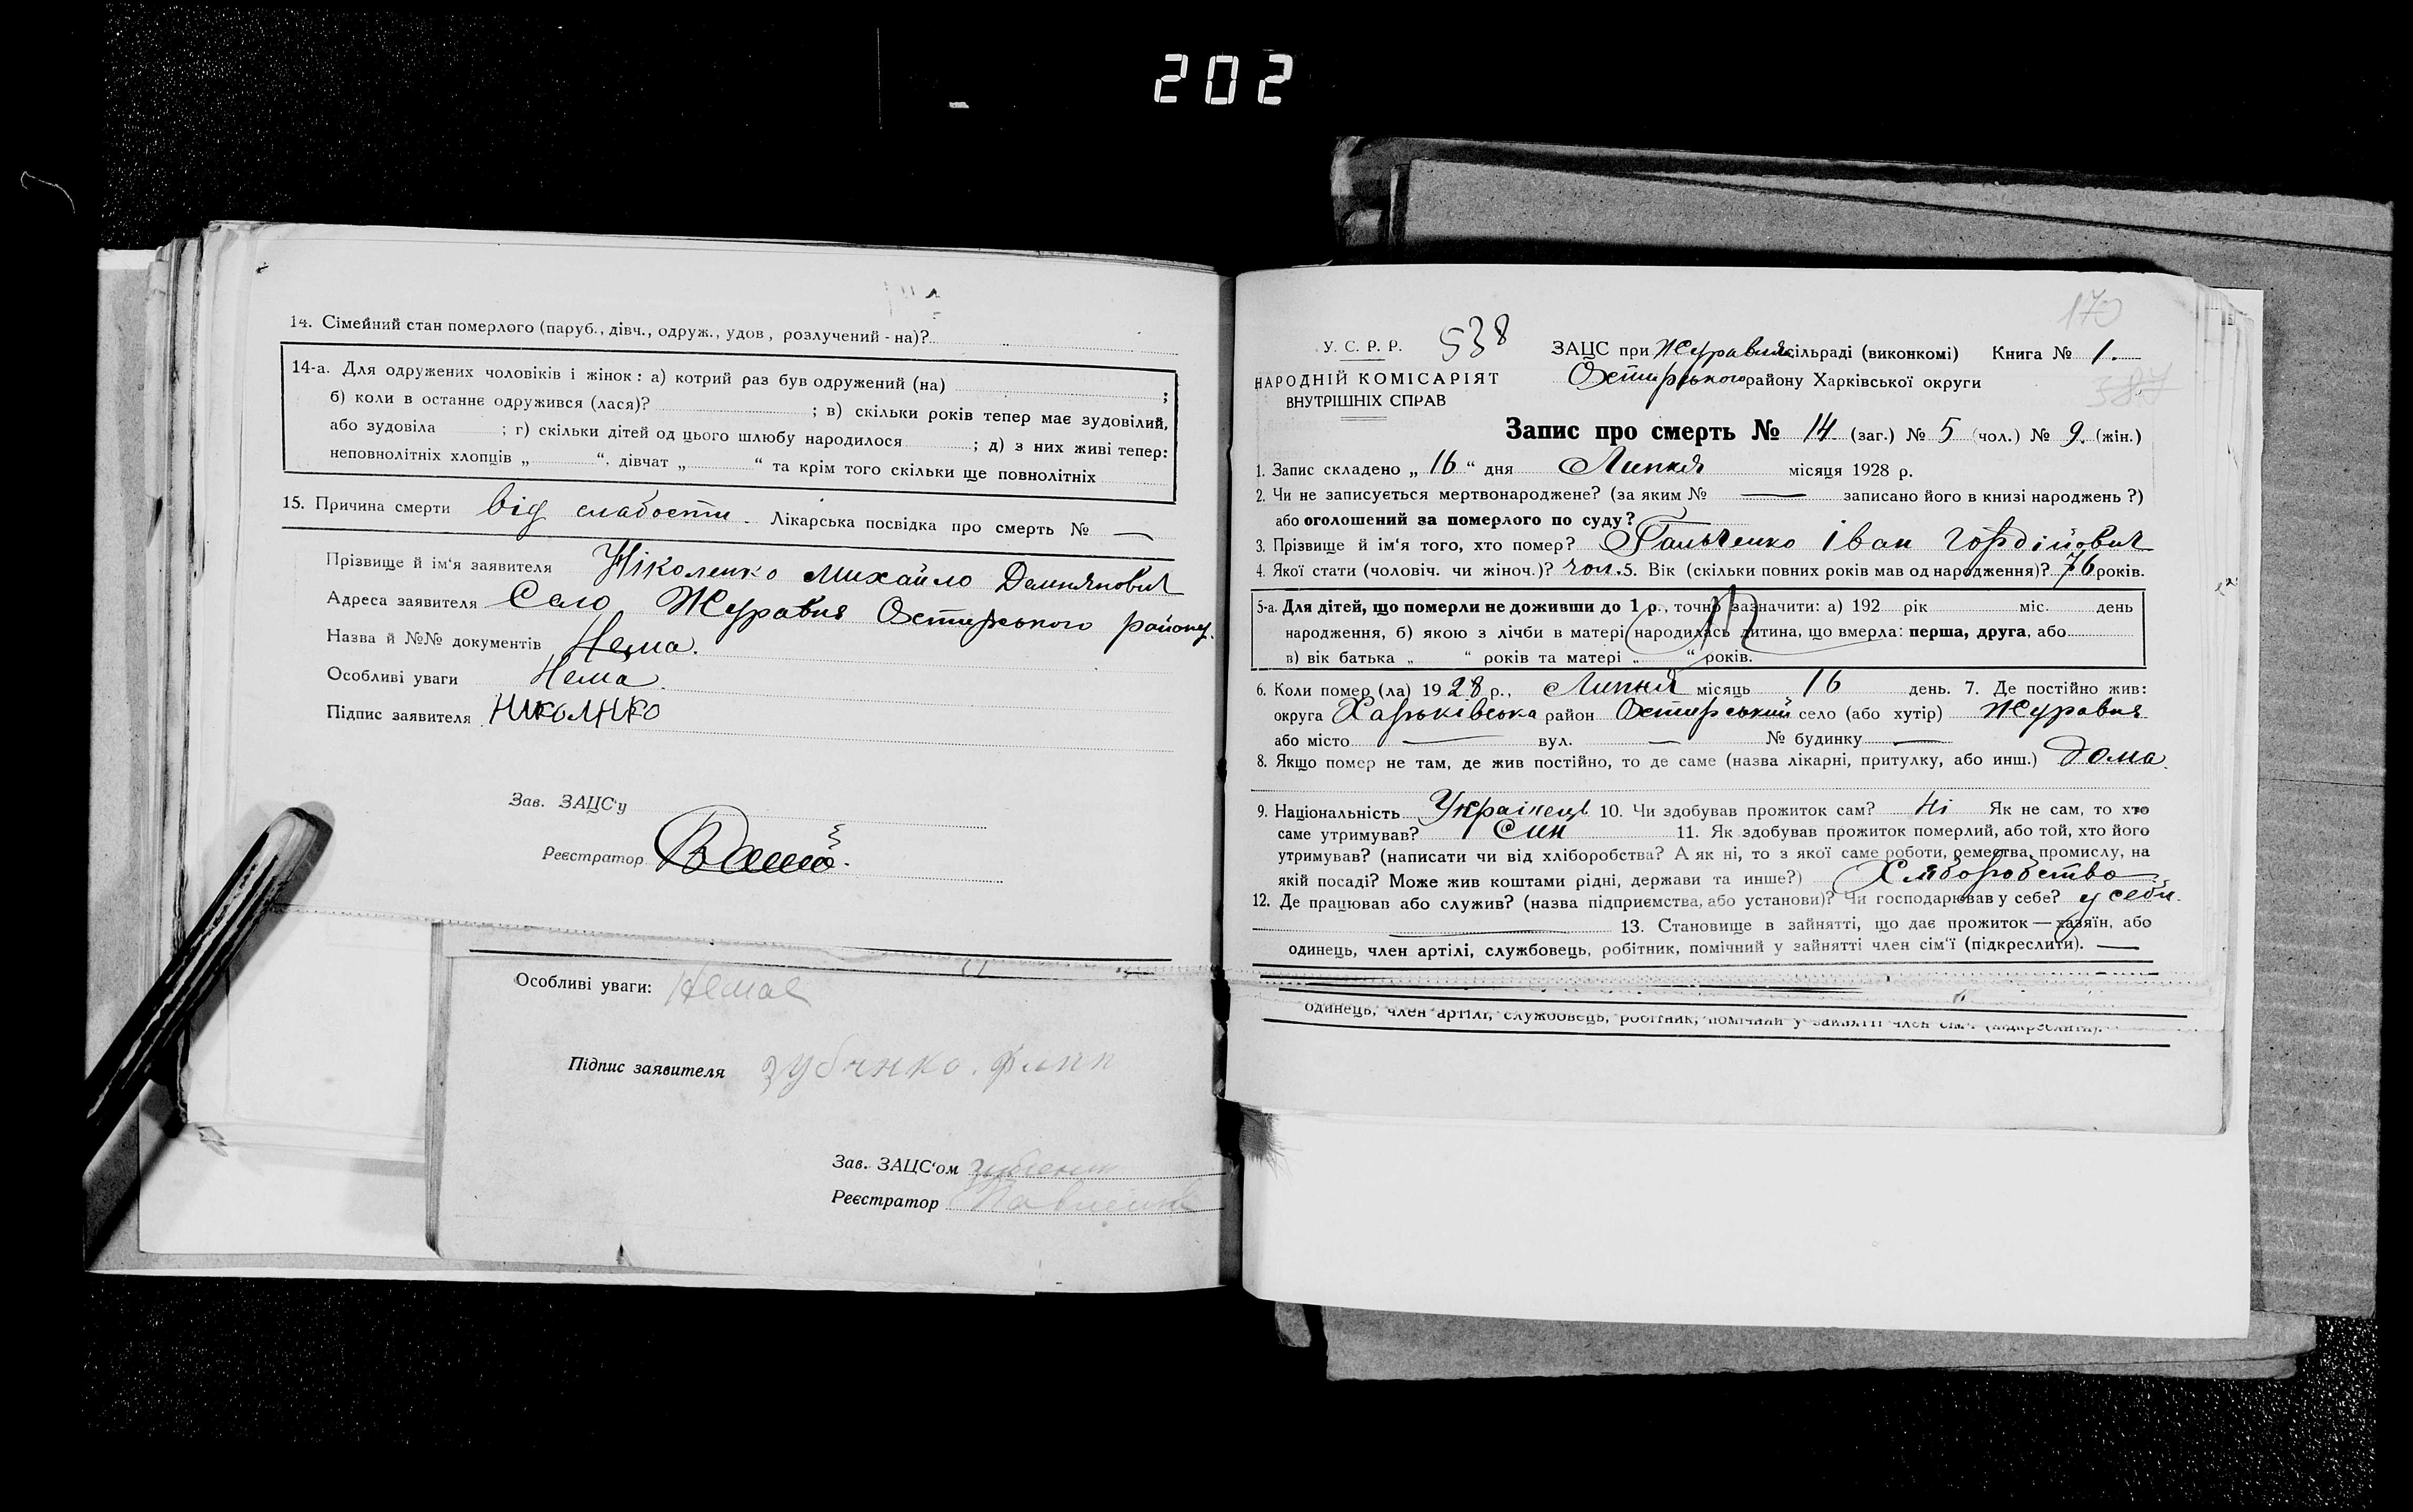 202
14. Сімейний стан померлого (паруб., дівч., одруж., удов, розлучений-на)?
14-а. Для одружених чоловіків і жінок: а) котрий раз був одружений (на) ;
б) коли в останнє одружився (лася)? ; в) скільки років тепер має зудовілий,
або зудовіла ; г) скільки дітей од цього шлюбу народилося ; д) з них живі тепер:
неповнолітніх хлопців „ “, дівчат „ “ та крім того скільки ще повнолітніх
15. Причина смерти від слабости. Лікарська посвідка про смерть № —
Прізвище й ім'я заявителя Ніколенко Михайло Демянович
Адреса заявителя Село Журавня Охтирського району.
Назва й №№ документів Нема.
Особливі уваги Нема.
Підпис заявителя
Зав. ЗАЦС'у
Реєстратор
Особливі уваги: Немає
Підпис заявителя
Зав. ЗАЦС'ом
Реєстратор
170
У. С. Р. Р. 538 ЗАЦС при Журавня сільраді (виконкомі) Книга № 1.
НАРОДНІЙ КОМІСАРІЯТ Охтирського району Харківської округи
ВНУТРІШНІХ СПРАВ 387
Запис про смерть № 14 (заг.) № 5 (чол.) № 9. (жін.)
1. Запис складено „ 16 “ дня Липня місяця 1928 р.
2. Чи не записується мертвонароджене? (за яким № — записано його в книзі народжень ?)
або оголошений за померлого по суду?
3. Прізвище й ім'я того, хто помер? Гальченко Іван Гордійович
4. Якої стати (чоловіч. чи жіноч.)? чол. 5. Вік (скільки повних років мав од народження)? 76 років.
5-а. Для дітей, що померли не доживши до 1 р., точно зазначити: а) 192 рік міс. день
народження, б) якою з лічби в матері народилась дитина, що вмерла: перша, друга, або
в) вік батька „ “ років та матері „ “ років.
6. Коли помер (ла) 1928 р., Липня місяць 16 день. 7. Де постійно жив:
округа Харьківська район Охтирський село (або хутір) Журавня
або місто — вул. — № будинку —
8. Якщо помер не там, де жив постійно, то де саме (назва лікарні, притулку, або инш.) дома.
9. Національність Українець 10. Чи здобував прожиток сам? Ні Як не сам, то хто
саме утримував? Син 11. Як здобував прожиток померлий, або той, хто його
утримував? (написати чи від хліборобства? А як ні, то з якої саме роботи, ремества, промислу, на
якій посаді? Може жив коштами рідні, держави та инше?) Хліборобство
12. Де працював або служив? (назва підприємства, або установи)? Чи господарював у себе? у себе.
13. Становище в зайнятті, що дає прожиток — хазяїн, або
одинець, член артілі, службовець, робітник, помічний у зайнятті член сім'ї (підкреслити). —
одинець, член артілі, службовець, робітник, помічний у зайнятті член сім'ї (підкреслити).